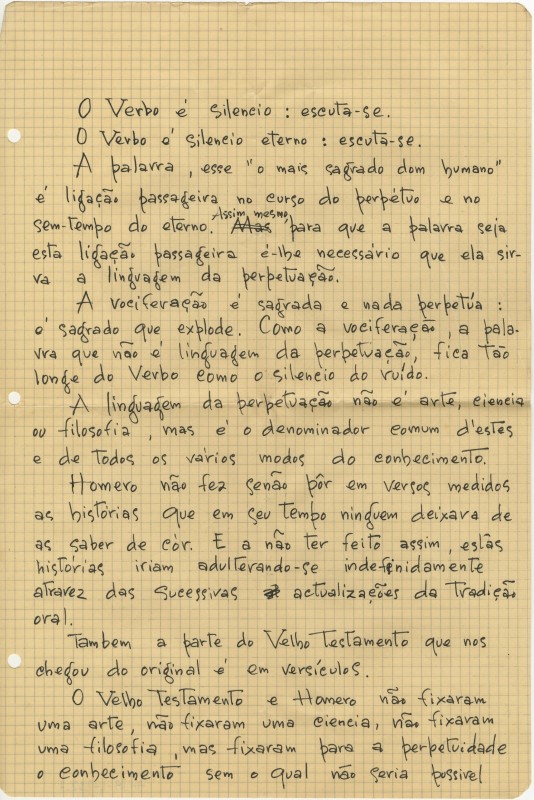 O Verbo é silencio : escuta-se.
O Verbo é silencio eterno : escuta-se.
A palavra, esse "o mais sagrado dom humano"
é ligação passageira no curso do perpétuo e no
sem-tempo do eterno. Assim mesmo, Mas para que a palavra seja
esta ligação passageira é-lhe necessário que ela sir-
va a linguagem da perpetuação.
A vociferação é sagrada e nada perpetúa :
é sagrado que explode. Como a vociferação, a pala-
vra que não é linguagem da perpetuação, fica tão
longe do Verbo como o silencio do ruído.
A linguagem da perpetuação não é arte, ciencia
ou filosofia, mas é o denominador comum d'estes
e de todos os vários modos do conhecimento.
Homero não fez senão pôr em versos medidos
as histórias que em seu tempo ninguem deixava de
as saber de cór. E a não ter feito assim, estas
histórias iriam adulterando-se indefinidamente
atravez das sucessivas actualizações da Tradição
oral.
Tambem a parte do Velho Testamento que nos
chegou do original é em versículos.
O Velho Testamento e Homero não fixaram
uma arte, não fixaram uma ciencia, não fixaram
uma filosofia, mas fixaram para a perpetuidade
o conhecimento sem o qual não seria possivel